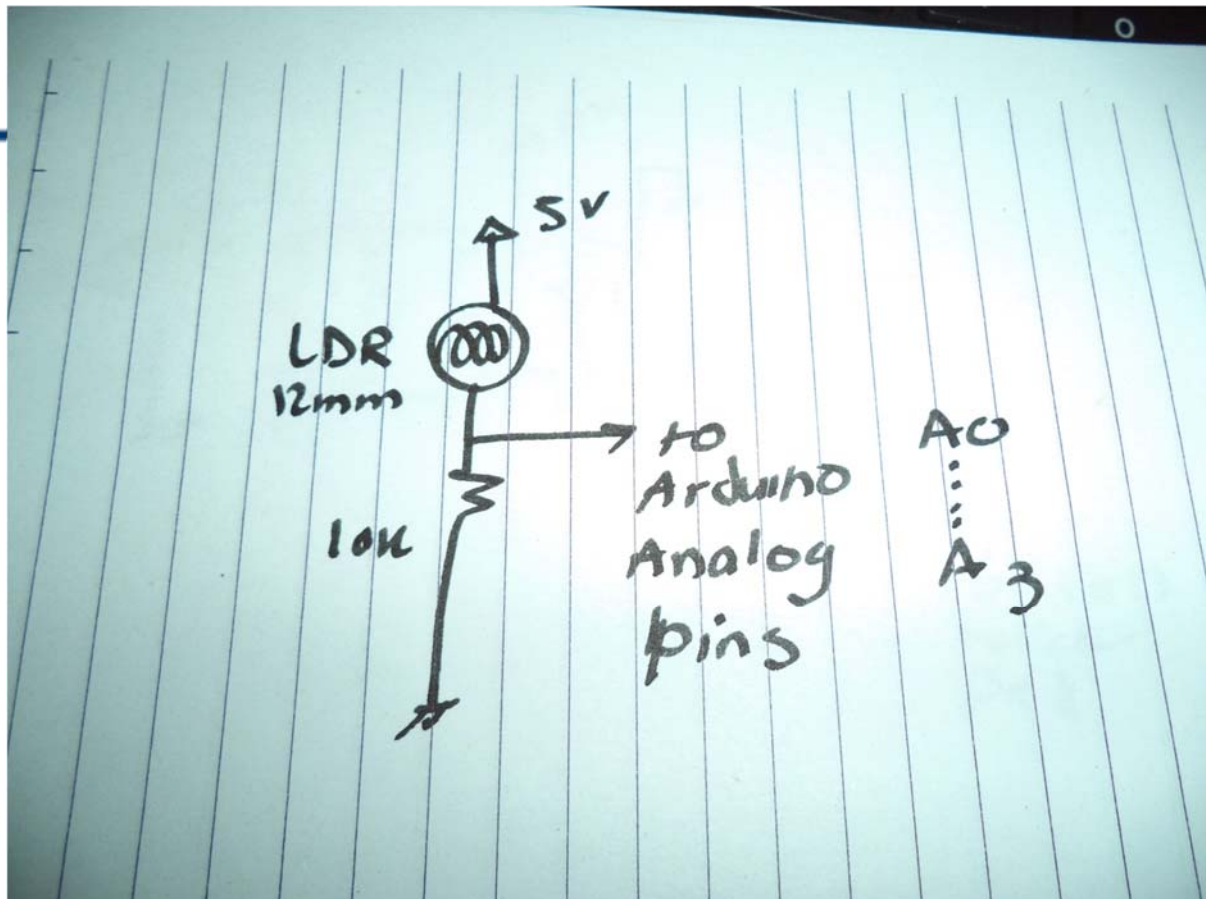 5v
LDR
12mm
to
Arduino
Analog
pins
A0
A3
10K